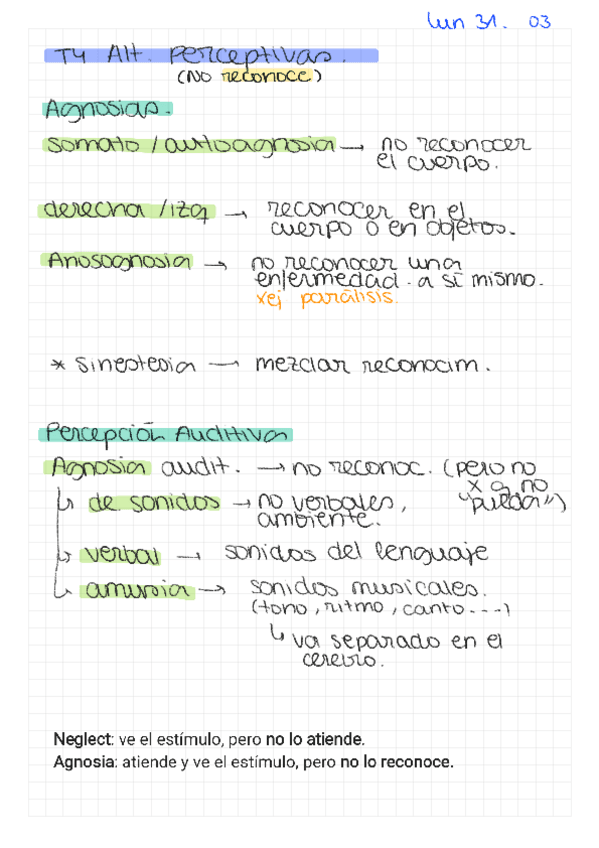 lun 31. 03
T4 Alt. perceptivas.
(No reconoce)
Agnosias.
somato / autoagnosia → no reconocer
el cuerpo.
derecha / izq → reconocer en el
cuerpo o en objetos.
Anosognosia → no reconocer una
enfermedad. a sí mismo.
xej parálisis.
* sinestesia — mezclar reconocim.
Percepción Auditiva
Agnosia audit. → no reconoc. (pero no
x q no
"puedan")
↳ de sonidos → no verbales,
ambiente.
↳ verbal → sonidos del lenguaje
↳ amusia → sonidos musicales.
(tono, ritmo, canto...)
↳ va separado en el
cerebro.
Neglect: ve el estímulo, pero no lo atiende.
Agnosia: atiende y ve el estímulo, pero no lo reconoce.